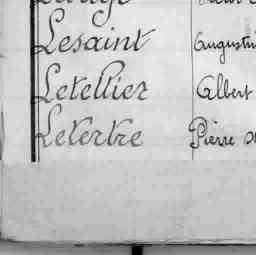 Lesaint Augustin
Letellier Albert
Letertre Pierre